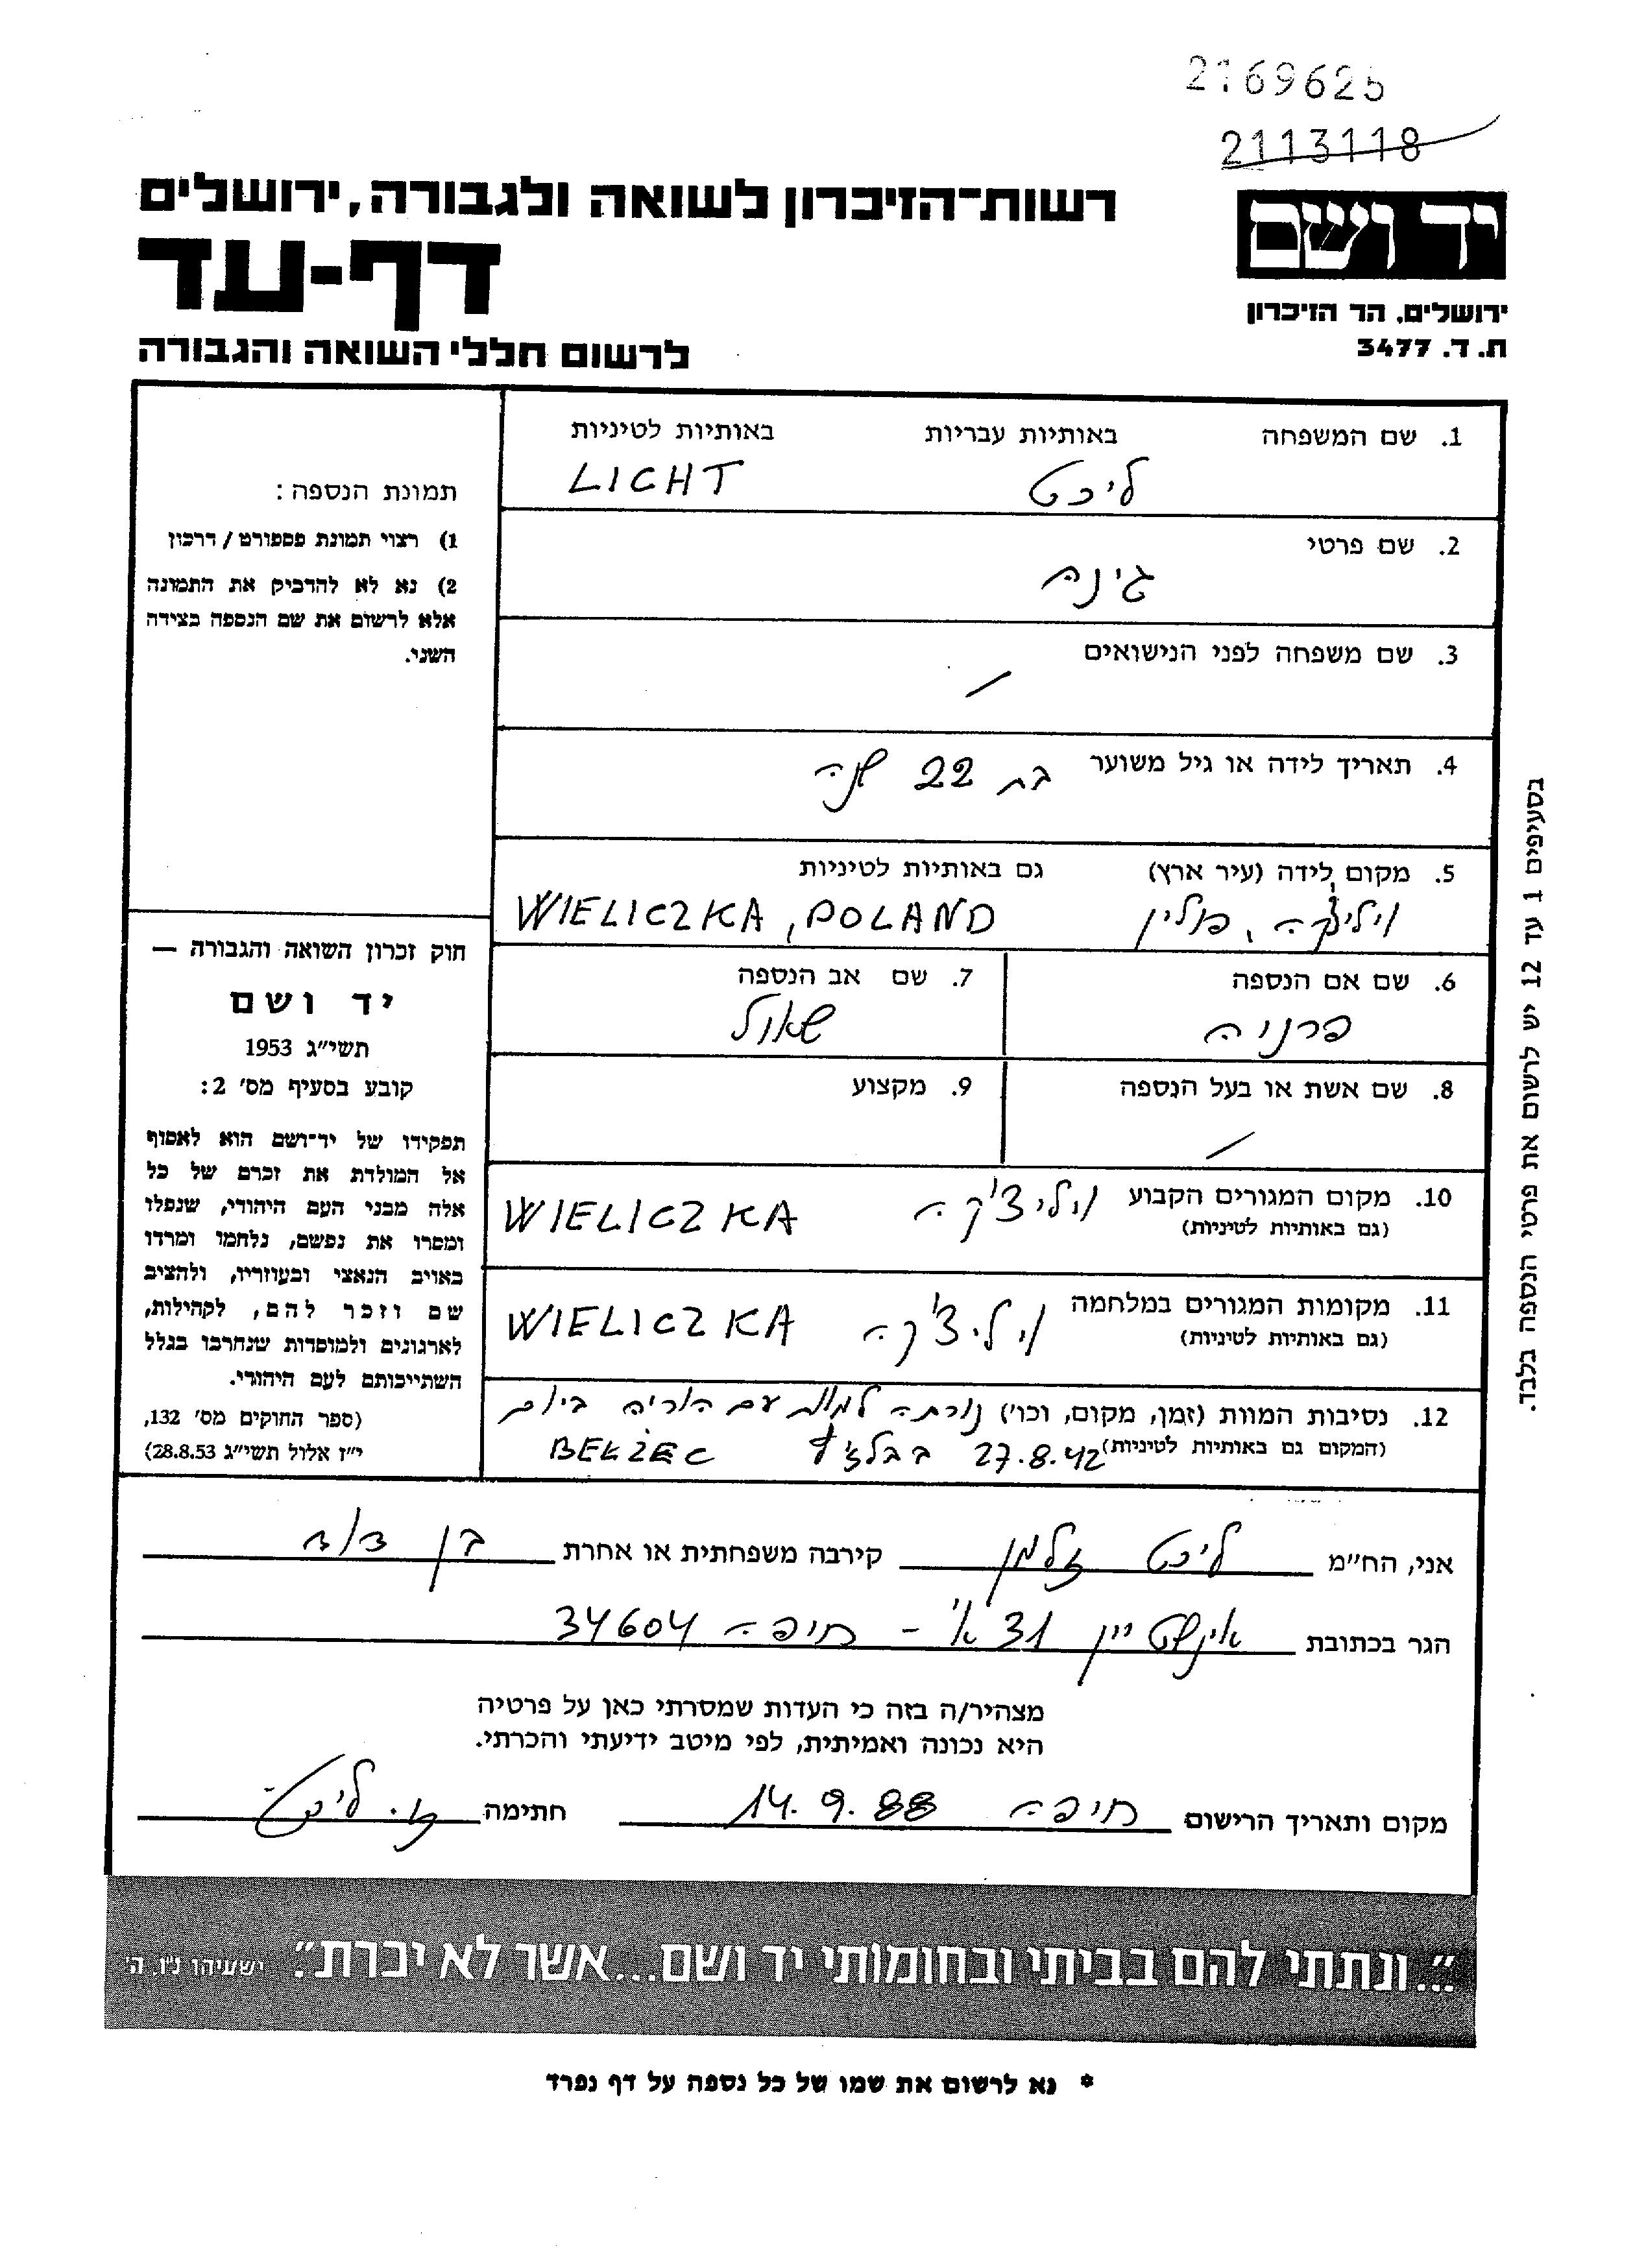 2169625
2113118
יד ושם
ירושלים, הר הזיכרון
ת. ד. 3477
רשות־הזיכרון לשואה ולגבורה, ירושלים
דף-עד
לרשום חללי השואה והגבורה
1. שם המשפחה באותיות עבריות באותיות לטיניות
ליכט LICHT
2. שם פרטי
גינה
3. שם משפחה לפני הנישואים
/
4. תאריך לידה או גיל משוער בת 22 שנה
5. מקום לידה (עיר ארץ) גם באותיות לטיניות
ויליצ'קה, פולין WIELICZKA, POLAND
6. שם אם הנספה 7. שם אב הנספה
פרניה שאול
8. שם אשת או בעל הנספה 9. מקצוע
/
10. מקום המגורים הקבוע ויליצ'קה WIELICZKA
(גם באותיות לטיניות)
11. מקומות המגורים במלחמה ויליצ'קה WIELICZKA
(גם באותיות לטיניות)
12. נסיבות המוות (זמן, מקום, וכו') נורתה למוות עם הוריה ביום
(המקום גם באותיות לטיניות) 27.8.42 בבלז'ץ BEŁŻEC
תמונת הנספה:
1) רצוי תמונת פספורט / דרכון
2) נא לא להדביק את התמונה
אלא לרשום את שם הנספה בצידה
השני.
חוק זכרון השואה והגבורה —
יד ושם
תשי״ג 1953
קובע בסעיף מס׳ 2:
תפקידו של יד־ושם הוא לאסוף
אל המולדת את זכרם של כל
אלה מבני העם היהודי, שנפלו
ומסרו את נפשם, נלחמו ומרדו
באויב הנאצי ובעוזריו, ולהציב
שם וזכר להם, לקהילות,
לארגונים ולמוסדות שנחרבו בגלל
השתייכותם לעם היהודי.
(ספר החוקים מס׳ 132,
י״ז אלול תשי״ג 28.8.53)
בסעיפים 1 עד 12 יש לרשום את פרטי הנספה בלבד.
אני, הח״מ ליכט זלמן קירבה משפחתית או אחרת בן דוד
הגר בכתובת אינשטיין 31 א' - חיפה 34604
מצהיר/ה בזה כי העדות שמסרתי כאן על פרטיה
היא נכונה ואמיתית, לפי מיטב ידיעתי והכרתי.
מקום ותאריך הרישום חיפה 14.9.88 חתימה ז. ליכט
״...ונתתי להם בביתי ובחומותי יד ושם...אשר לא יכרת״. ישעיהו נ״ו, ה'
* נא לרשום את שמו של כל נספה על דף נפרד